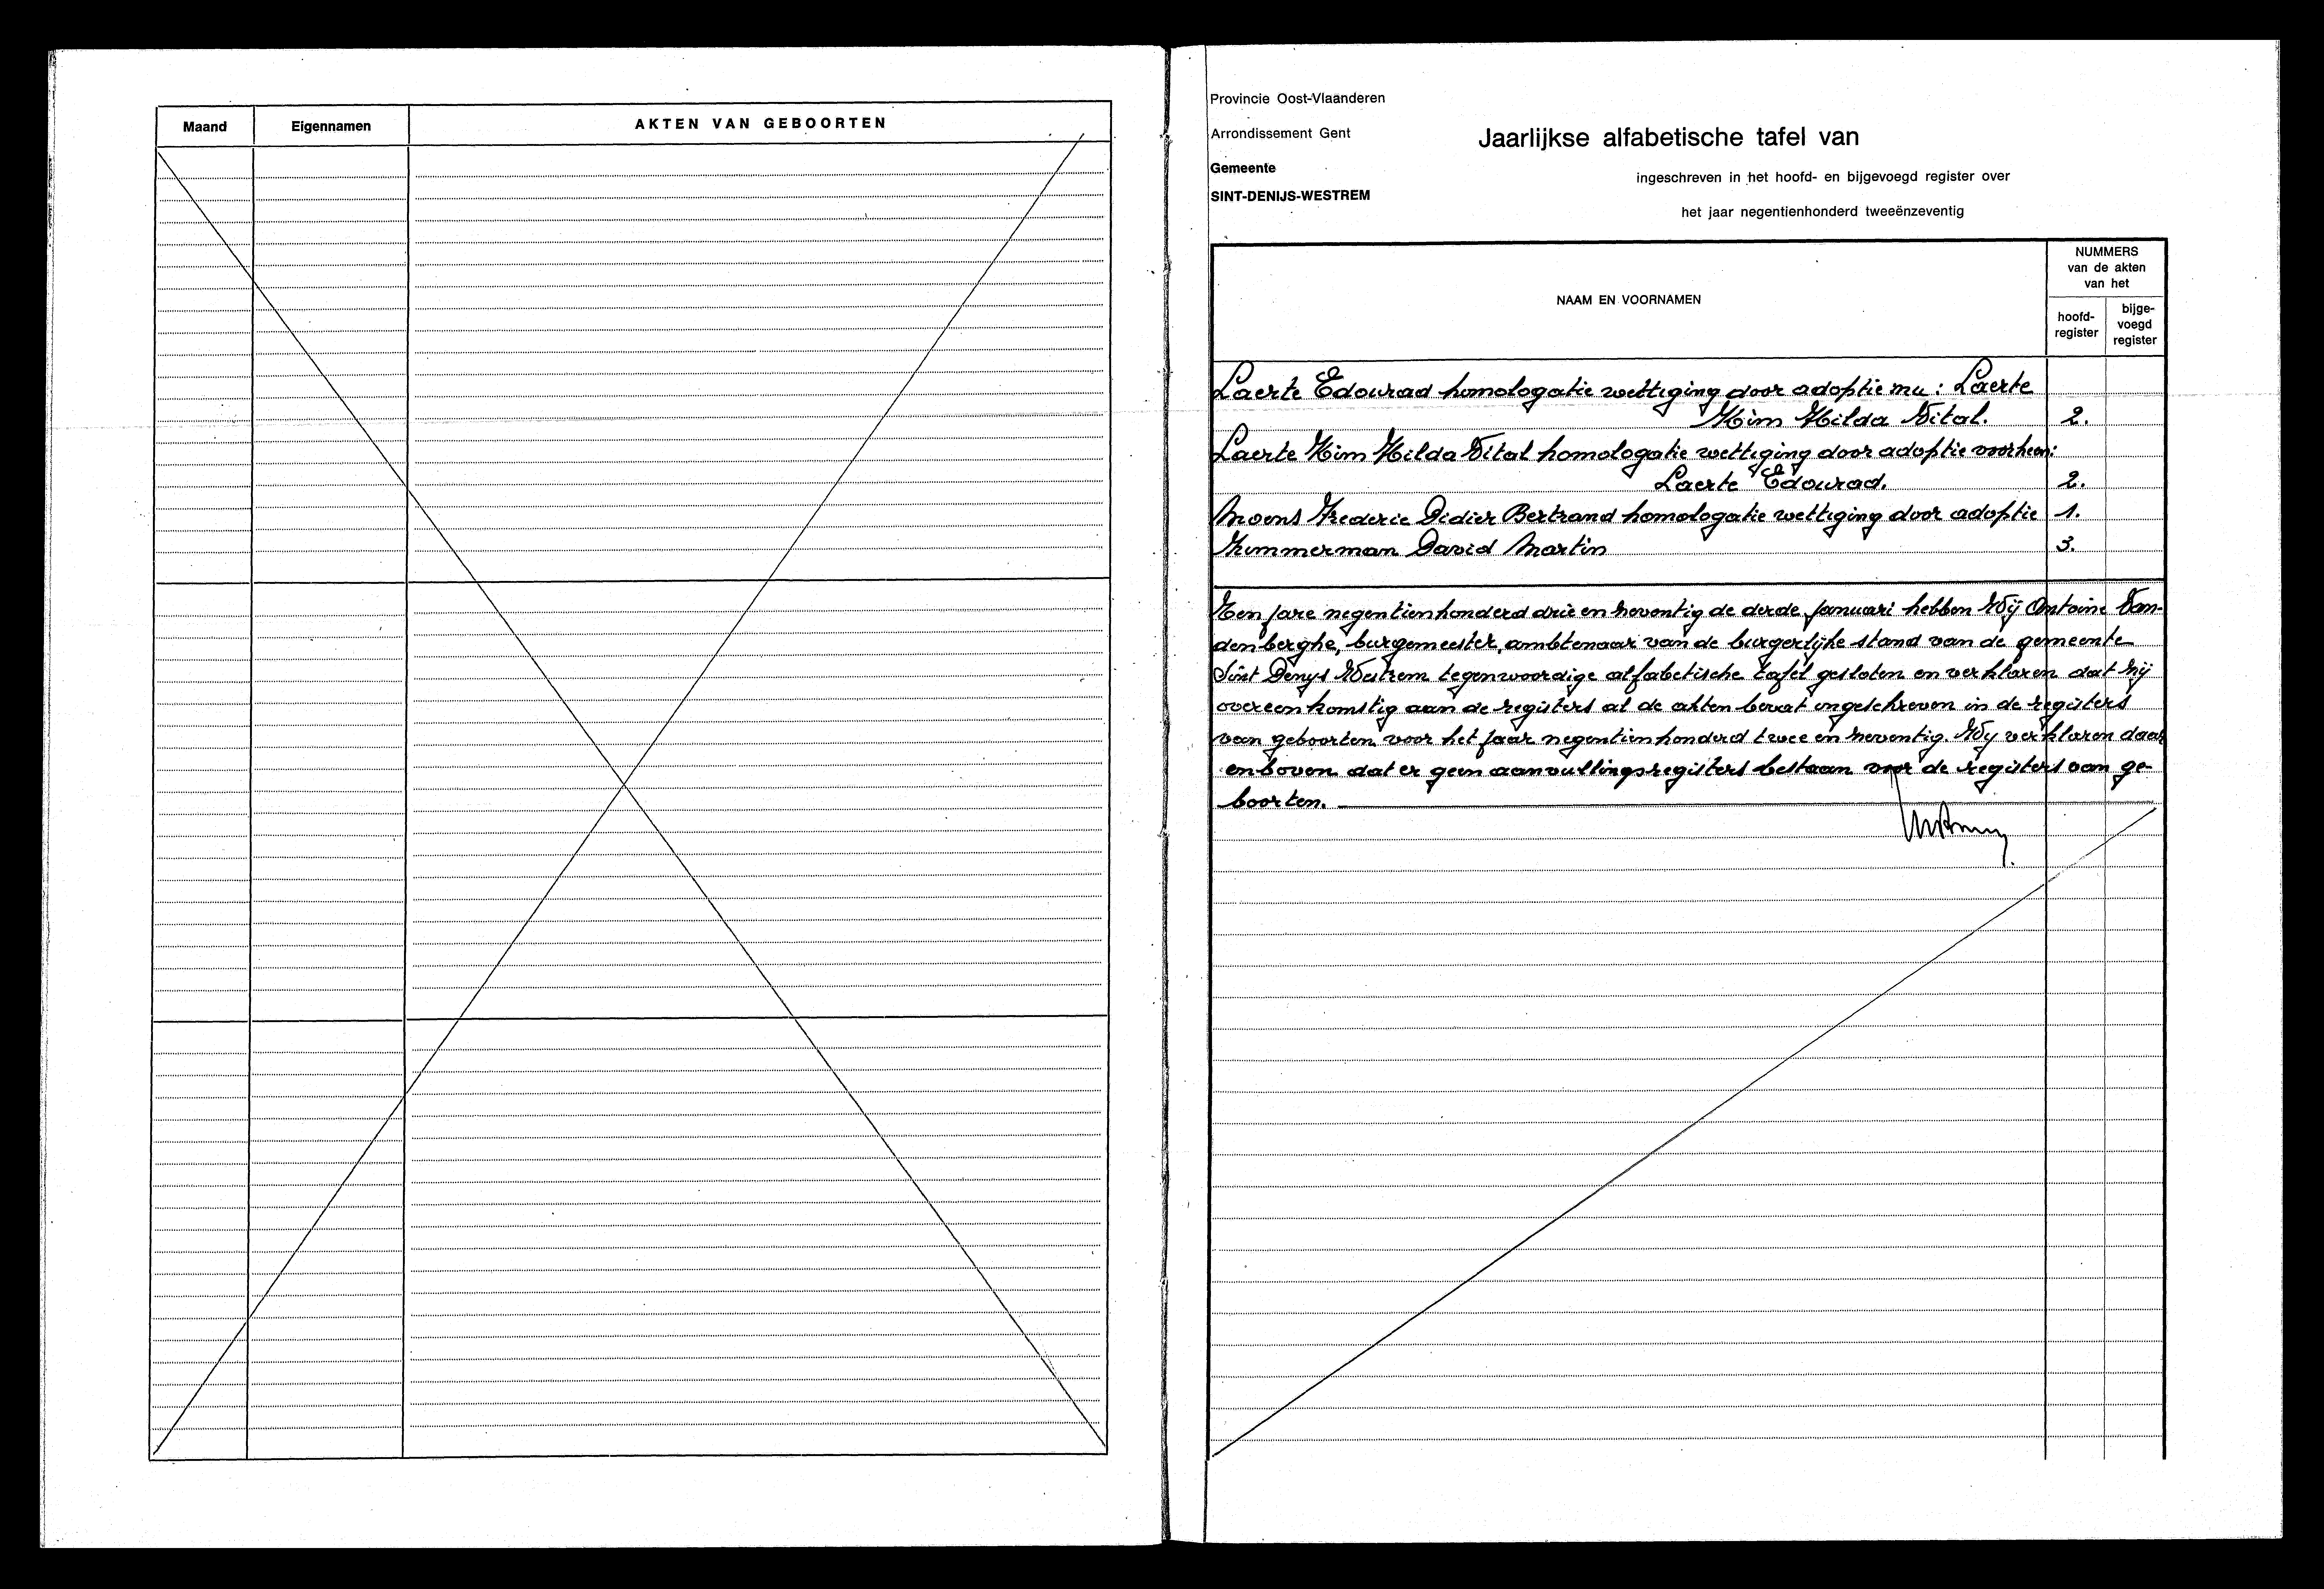 Maand
Eigennamen
AKTEN VAN GEBOORTEN
Provincie Oost-Vlaanderen
Arrondissement Gent
Gemeente
SINT-DENIJS-WESTREM
Jaarlijkse alfabetische tafel van
ingeschreven in het hoofd- en bijgevoegd register over
het jaar negentienhonderd tweeënzeventig
NAAM EN VOORNAMEN
NUMMERS
van de akten
van het
hoofd-
register
bijge-
voegd
register
Laerte Edourad homologatie wettiging door adoptie nu: Laerte
Kim Hilda Vital. 2.
Laerte Kim Hilda Vital homologatie wettiging door adoptie voorheen:
Laerte Edourad. 2.
Moens Frederic Didier Bertrand homologatie wettiging door adoptie 1.
Zimmerman David Martin 3.
Ten jare negentienhonderd drie en zeventig de derde januari hebben Wij Antoine Van-
denberghe, burgemeester, ambtenaar van de burgerlijke stand van de gemeente
Sint Denys Westrem tegenwoordige alfabetische tafel gesloten en verklaren dat hij
overeenkomstig aan de registers al de akten bevat ingeschreven in de registers
van geboorten voor het jaar negentienhonderd twee en zeventig. Wij verklaren daar
enboven dat er geen aanvullingsregisters bestaan voor de registers van ge-
boorten.